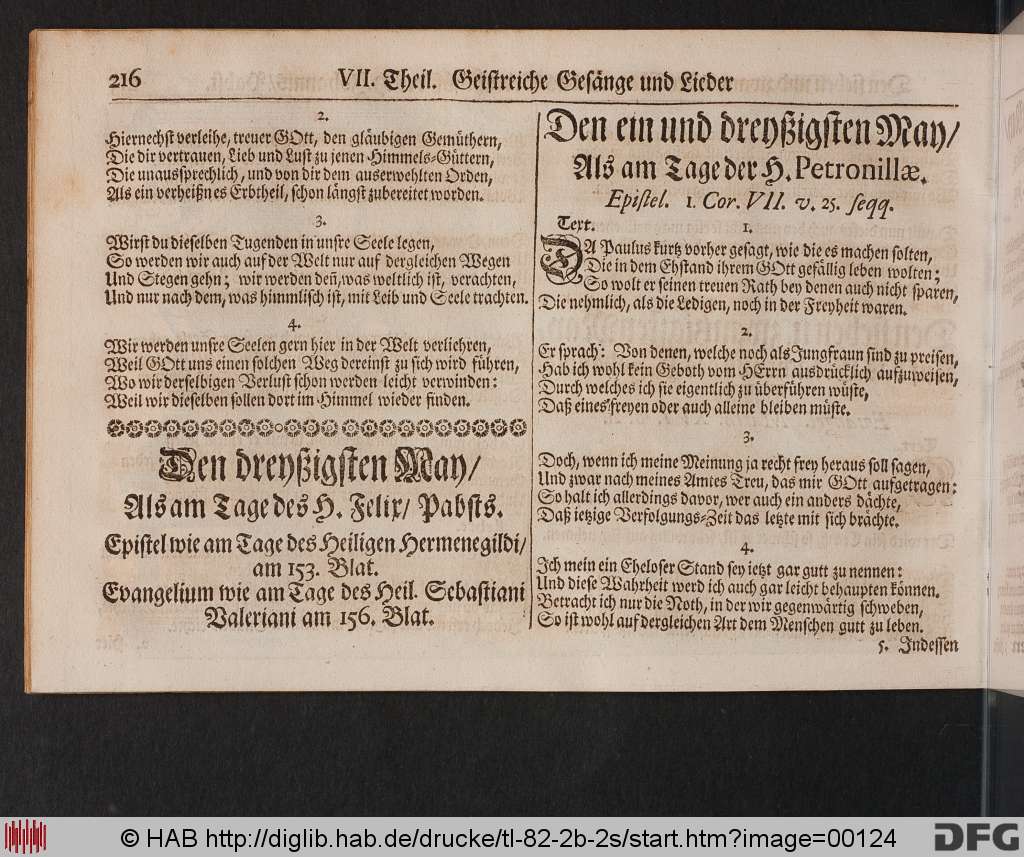 216 VII. Theil. Geistreiche Gesänge und Lieder
2.
Hiernechst verleihe, treuer GOtt, den gläubigen Gemüthern,
Die dir vertrauen, Lieb und Lust zu jenen Himmels-Güttern,
Die unausprechlich, und von dir dem auserwehlten Orden,
Als ein verheißnes Erbtheil, schon längst zubereitet worden.
3.
Wirst du dieselben Tugenden in unsre Seele legen,
So werden wir auch auf der Welt nur auf dergleichen Wegen
Und Stegen gehn; wir werden deñ, was weltlich ist, verachten,
Und nur nach dem, was himmlisch ist, mit Leib und Seele trachten.
4.
Wir werden unsre Seelen gern hier in der Welt verliehren,
Weil GOtt uns einen solchen Weg dereinst zu sich wird führen,
Wo wir derselbigen Verlust schon werden leicht verwinden:
Weil wir dieselben sollen dort im Himmel wieder finden.
Den dreyßigsten May/
Als am Tage des H. Felix/ Pabsts.
Epistel wie am Tage des Heiligen Hermenegildi/
am 153. Blat.
Evangelium wie am Tage des Heil. Sebastiani
Valeriani am 156. Blat.
Den ein und dreyßigsten May/
Als am Tage der H. Petronillæ.
Epistel. 1. Cor. VII. v. 25. seqq.
Text. 1.
DA Paulus kurtz vorher gesagt, wie die es machen solten,
Die in dem Ehstand ihrem GOtt gefällig leben wolten;
So wolt er seinen treuen Rath bey denen auch nicht sparen,
Die nehmlich, als die Ledigen, noch in der Freyheit waren.
2.
Er sprach: Von denen, welche noch als Jungfraun sind zu preisen,
Hab ich wohl kein Geboth vom HErrn ausdrücklich aufzuweisen,
Durch welches ich sie eigentlich zu überführen wüste,
Daß eines freyen oder auch alleine bleiben müste.
3.
Doch, wenn ich meine Meinung ja recht frey heraus soll sagen,
Und zwar nach meines Amtes Treu, das mir GOtt aufgetragen:
So halt ich allerdings davor, wer auch ein anders dächte,
Daß ietzige Verfolgungs-Zeit das letzte mit sich brächte.
4.
Ich mein ein Eheloser Stand sey ietzt gar gutt zu nennen:
Und diese Wahrheit werd ich auch gar leicht behaupten können.
Betracht ich nur die Noth, in der wir gegenwärtig schweben,
So ist wohl auf dergleichen Art dem Menschen gutt zu leben.
5. Indessen
© HAB http://diglib.hab.de/drucke/tl-82-2b-2s/start.htm?image=00124
DFG